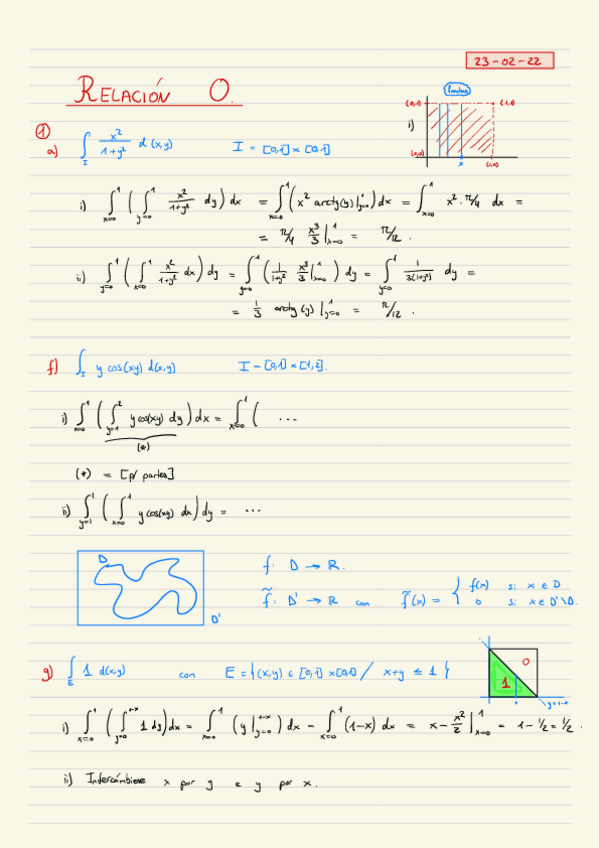 23-02-22
RELACIÓN 0.
Pruebas
(0,1) (1,1)
i)
(0,0) (1,0)
x
①
a) ∫_I x²/(1+y²) d(x,y) I = [0,1] × [0,1]
i) ∫_{x=0}^1 (∫_{y=0}^1 x²/(1+y²) dy) dx = ∫_{x=0}^1 (x² arctg(y)|_{y=0}^1) dx = ∫_{x=0}^1 x² · π/4 dx =
= π/4 x³/3 |_{x=0}^1 = π/12 .
ii) ∫_{y=0}^1 (∫_{x=0}^1 x²/(1+y²) dx) dy = ∫_{y=0}^1 (1/(1+y²) x³/3 |_{x=0}^1) dy = ∫_{y=0}^1 1/(3(1+y²)) dy =
= 1/3 arctg(y) |_{y=0}^1 = π/12 .
f) ∫_I y cos(xy) d(x,y) I = [0,1] × [1,2].
i) ∫_{x=0}^1 (∫_{y=1}^2 y cos(xy) dy) dx = ∫_{x=0}^1 ( ...
(*)
(*) = [p/ partes]
ii) ∫_{y=1}^1 (∫_{x=0}^1 y cos(xy) dx) dy = ...
D
f: D → R.
f̃: D' → R con f̃(x) = { f(x) si x ∈ D
0 si x ∈ D'\D.
D'
g) ∫_E 1 d(x,y) con E = {(x,y) ∈ [0,1] × [0,1] / x+y ≤ 1}
0
1
y=1-x
i) ∫_{x=0}^1 (∫_{y=0}^{1-x} 1 dy) dx = ∫_{x=0}^1 (y|_{y=0}^{1-x}) dx = ∫_{x=0}^1 (1-x) dx = x - x²/2 |_{x=0}^1 = 1 - 1/2 = 1/2 .
ii) Intercambiese x por y e y por x.